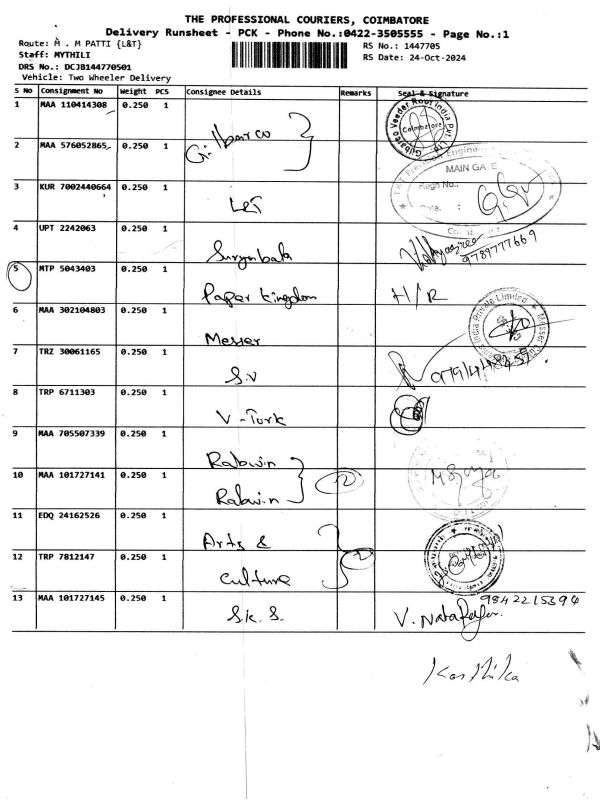 THE PROFESSIONAL COURIERS, COIMBATORE
Delivery Runsheet - PCK - Phone No.:0422-3505555 - Page No.:1
Route: M . M PATTI {L&T}
RS No.: 1447705
Staff: MYTHILI
RS Date: 24-Oct-2024
DRS No.: DCJB144770501
Vehicle: Two Wheeler Delivery
S No Consignment No Weight PCS Consignee Details Remarks Seal & Signature
1 MAA 110414308 0.250 1
Gilbarco
Gilbarco Veeder Root India Pvt. Ltd. Coimbatore
2 MAA 576052865 0.250 1
MAIN GATE
3 KUR 7002440664 0.250 1
L&T
4 UPT 2242063 0.250 1
Suryabala
9789777669
5 MTP 5043403 0.250 1
Paper kingdom H/R
6 MAA 302104803 0.250 1
Messer
7 TRZ 30061165 0.250 1
S.V
8 TRP 6711303 0.250 1
V-Turk
9 MAA 705507339 0.250 1
Rabwin
10 MAA 101727141 0.250 1
Rabwin
2
11 EDQ 24162526 0.250 1
Arts &
12 TRP 7812147 0.250 1
culture
13 MAA 101727145 0.250 1
9842215394
S.K.S. V. Natarajan
Karthika